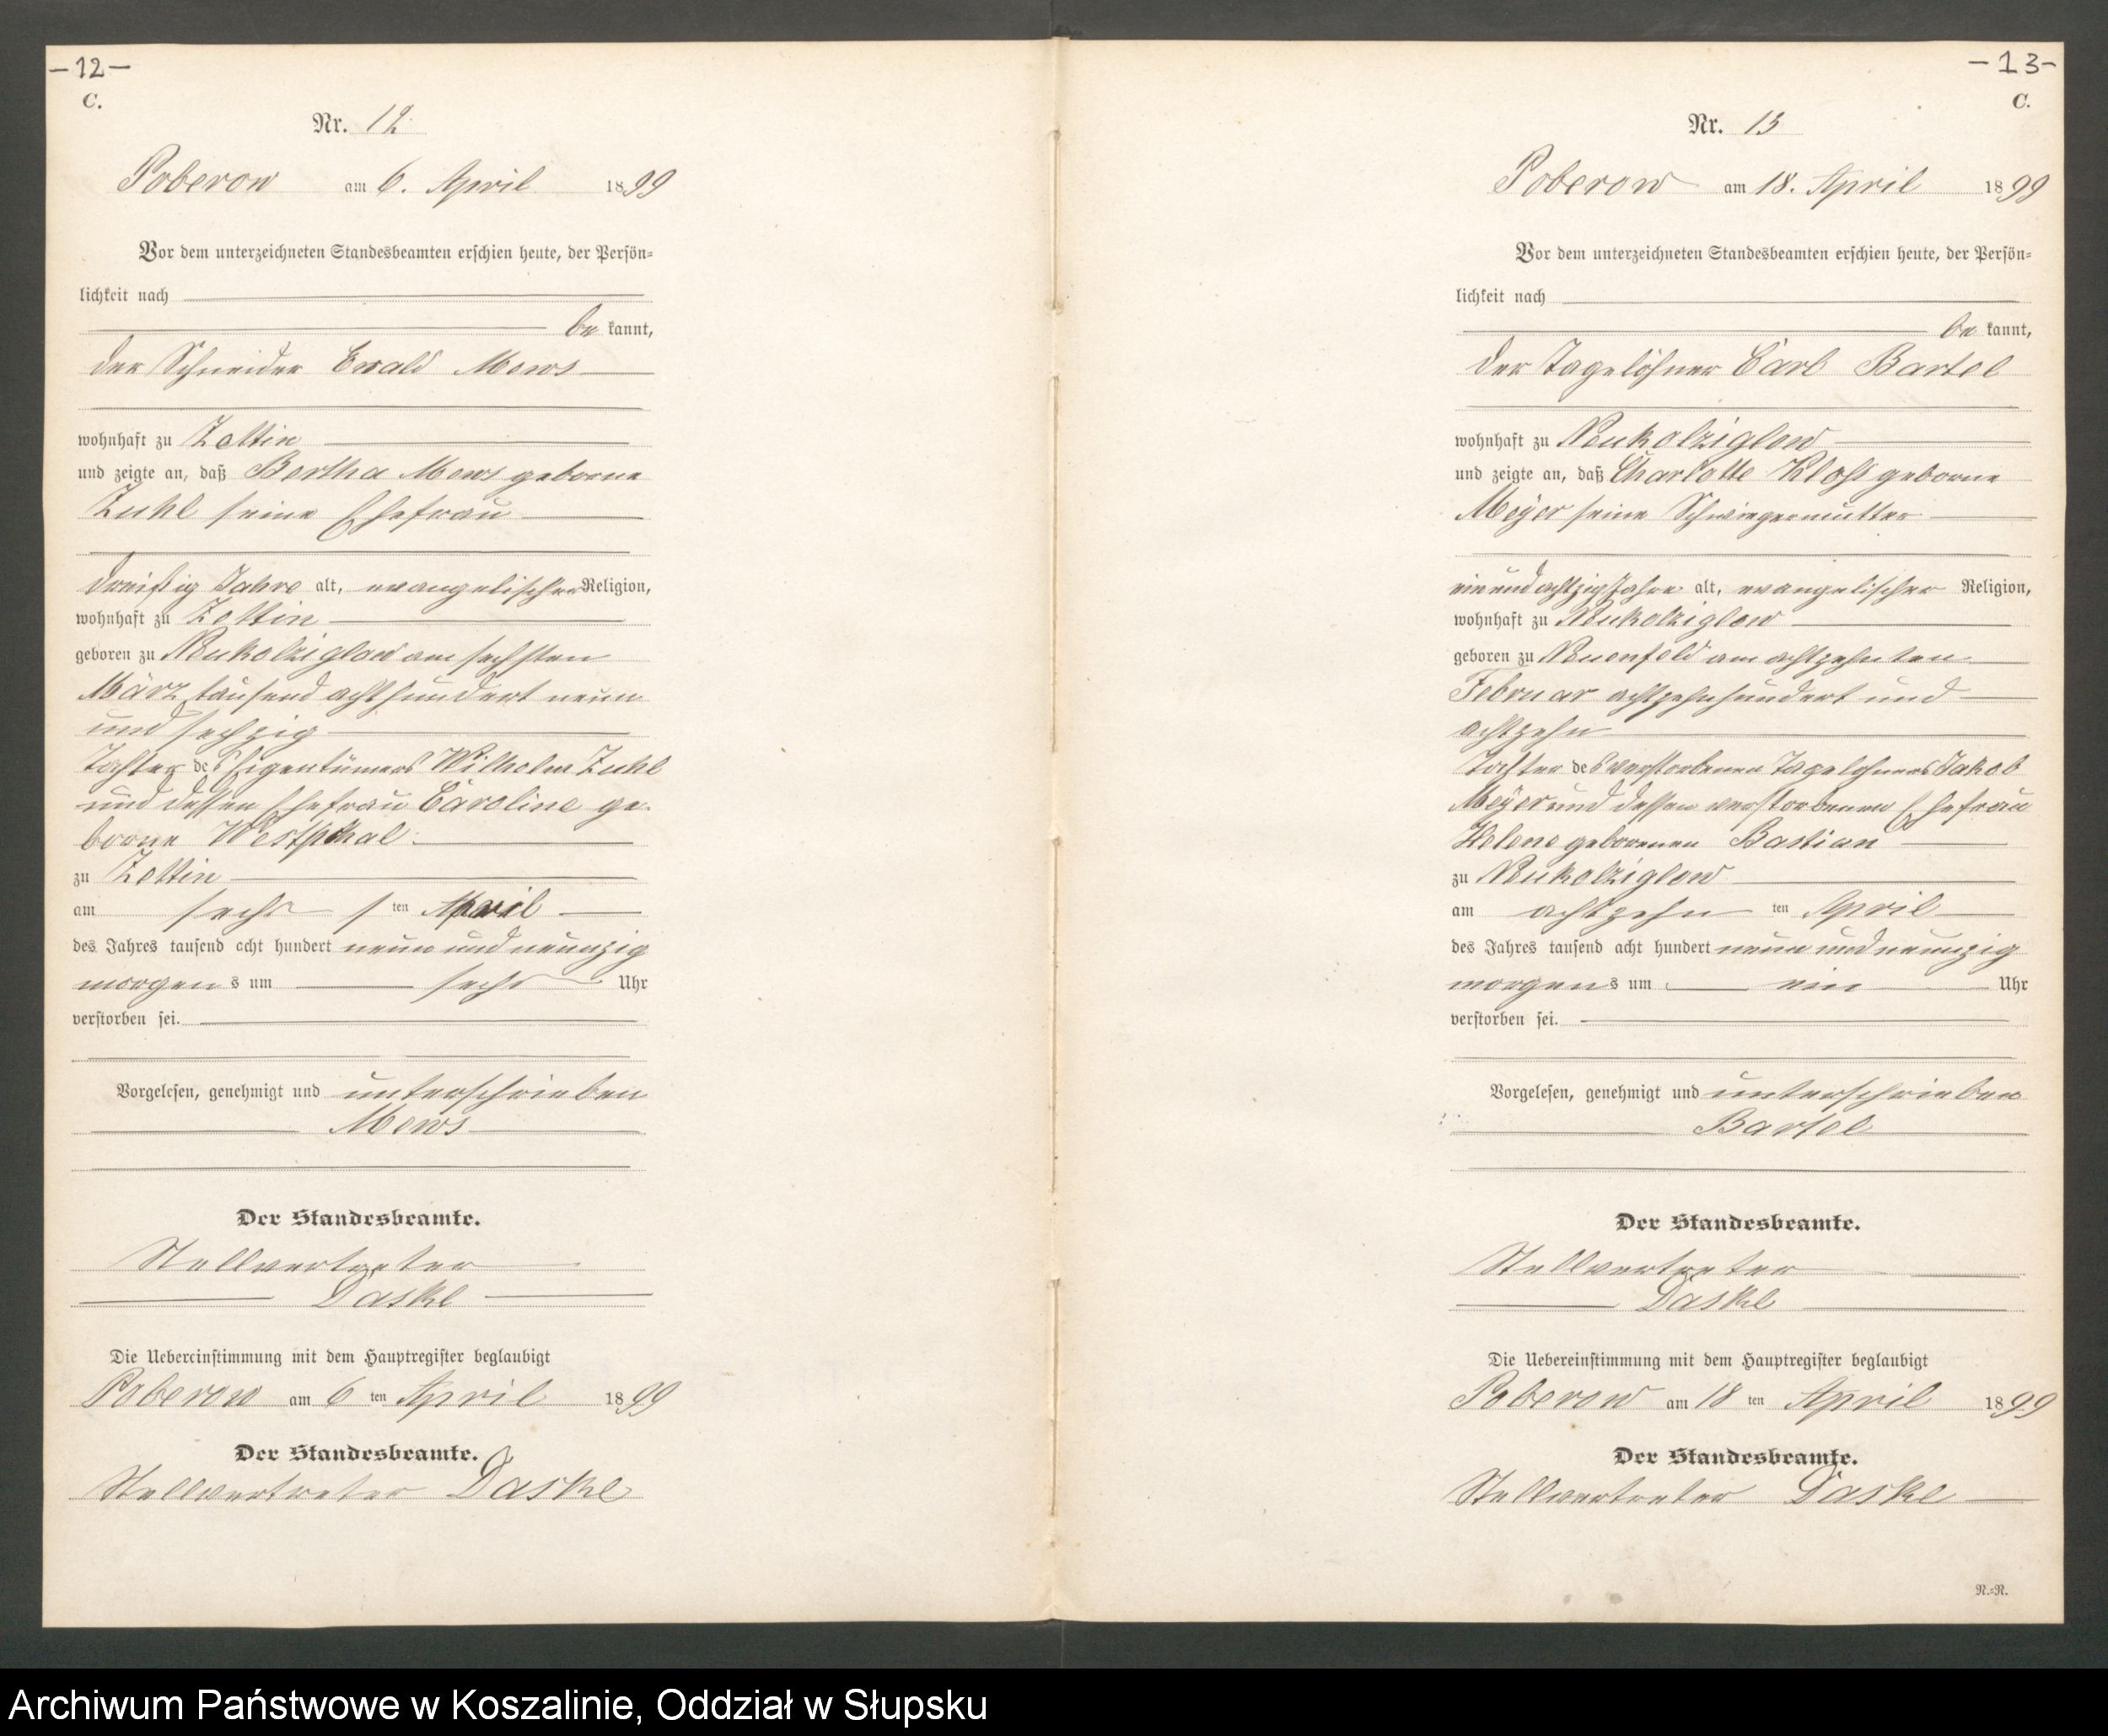 -12-
C.
Nr. 12
Poberow am 6. April 1899
Vor dem unterzeichneten Standesbeamten erschien heute, der Persön-
lichkeit nach
be kannt,
der Schneider Ewald Mews
wohnhaft zu Zettin
und zeigte an, daß Bertha Mews geborne
Zuhl seine Ehefrau
dreißig Jahre alt, evangelischer Religion,
wohnhaft zu Zettin
geboren zu Neukolziglow am sechsten
März tausend achthundert neun
und sechzig
Tochter des Eigentümers Wilhelm Zuhl
und dessen Ehefrau Caroline ge-
borne Westphal
zu Zettin
am sechs ten April
des Jahres tausend acht hundert neun und neunzig
morgens um sechs Uhr
verstorben sei.
Vorgelesen, genehmigt und unterschrieben
Mews
Der Standesbeamte.
Stellvertreter
Daske
Die Uebereinstimmung mit dem Hauptregister beglaubigt
Poberow am 6 ten April 1899
Der Standesbeamte.
Stellvertreter Daske
-13-
C.
Nr. 13
Poberow am 18. April 1899
Vor dem unterzeichneten Standesbeamten erschien heute, der Persön-
lichkeit nach
be kannt,
der Tagelöhner Carl Bartel
wohnhaft zu Neukolziglow
und zeigte an, daß Charlotte Kloß geborne
Meyer seine Schwiegermutter
ein und achtzig Jahre alt, evangelischer Religion,
wohnhaft zu Neukolziglow
geboren zu Neuenfeld am achtzehnten
Februar achtzehnhundert und
achtzehn
Tochter des verstorbenen Tagelöhners Jakob
Meyer und dessen verstorbenen Ehefrau
Helene geborenen Bastian
zu Neukolziglow
am achtzehn ten April
des Jahres tausend acht hundert neun und neunzig
morgens um ein Uhr
verstorben sei.
Vorgelesen, genehmigt und unterschrieben
Bartel
Der Standesbeamte.
Stellvertreter
Daske
Die Uebereinstimmung mit dem Hauptregister beglaubigt
Poberow am 18 ten April 1899
Der Standesbeamte.
Stellvertreter Daske
N.=N.
Archiwum Państwowe w Koszalinie, Oddział w Słupsku